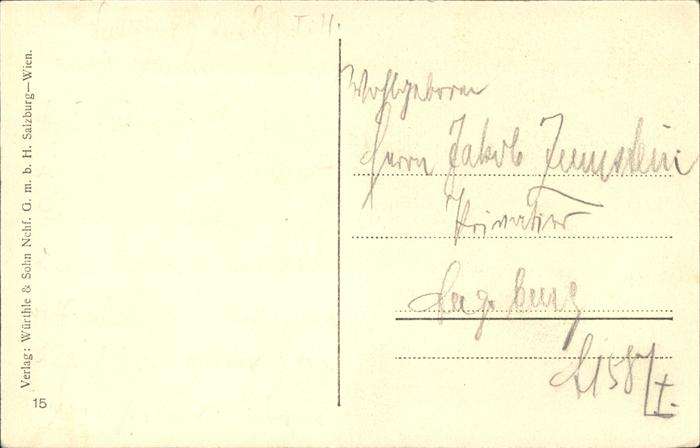 Verlag: Würthle & Sohn Nchf. G. m. b. H. Salzburg—Wien.
15
Wohlgeboren
Herrn Jakob Zumstein
Privatier
Augsburg
158/I.